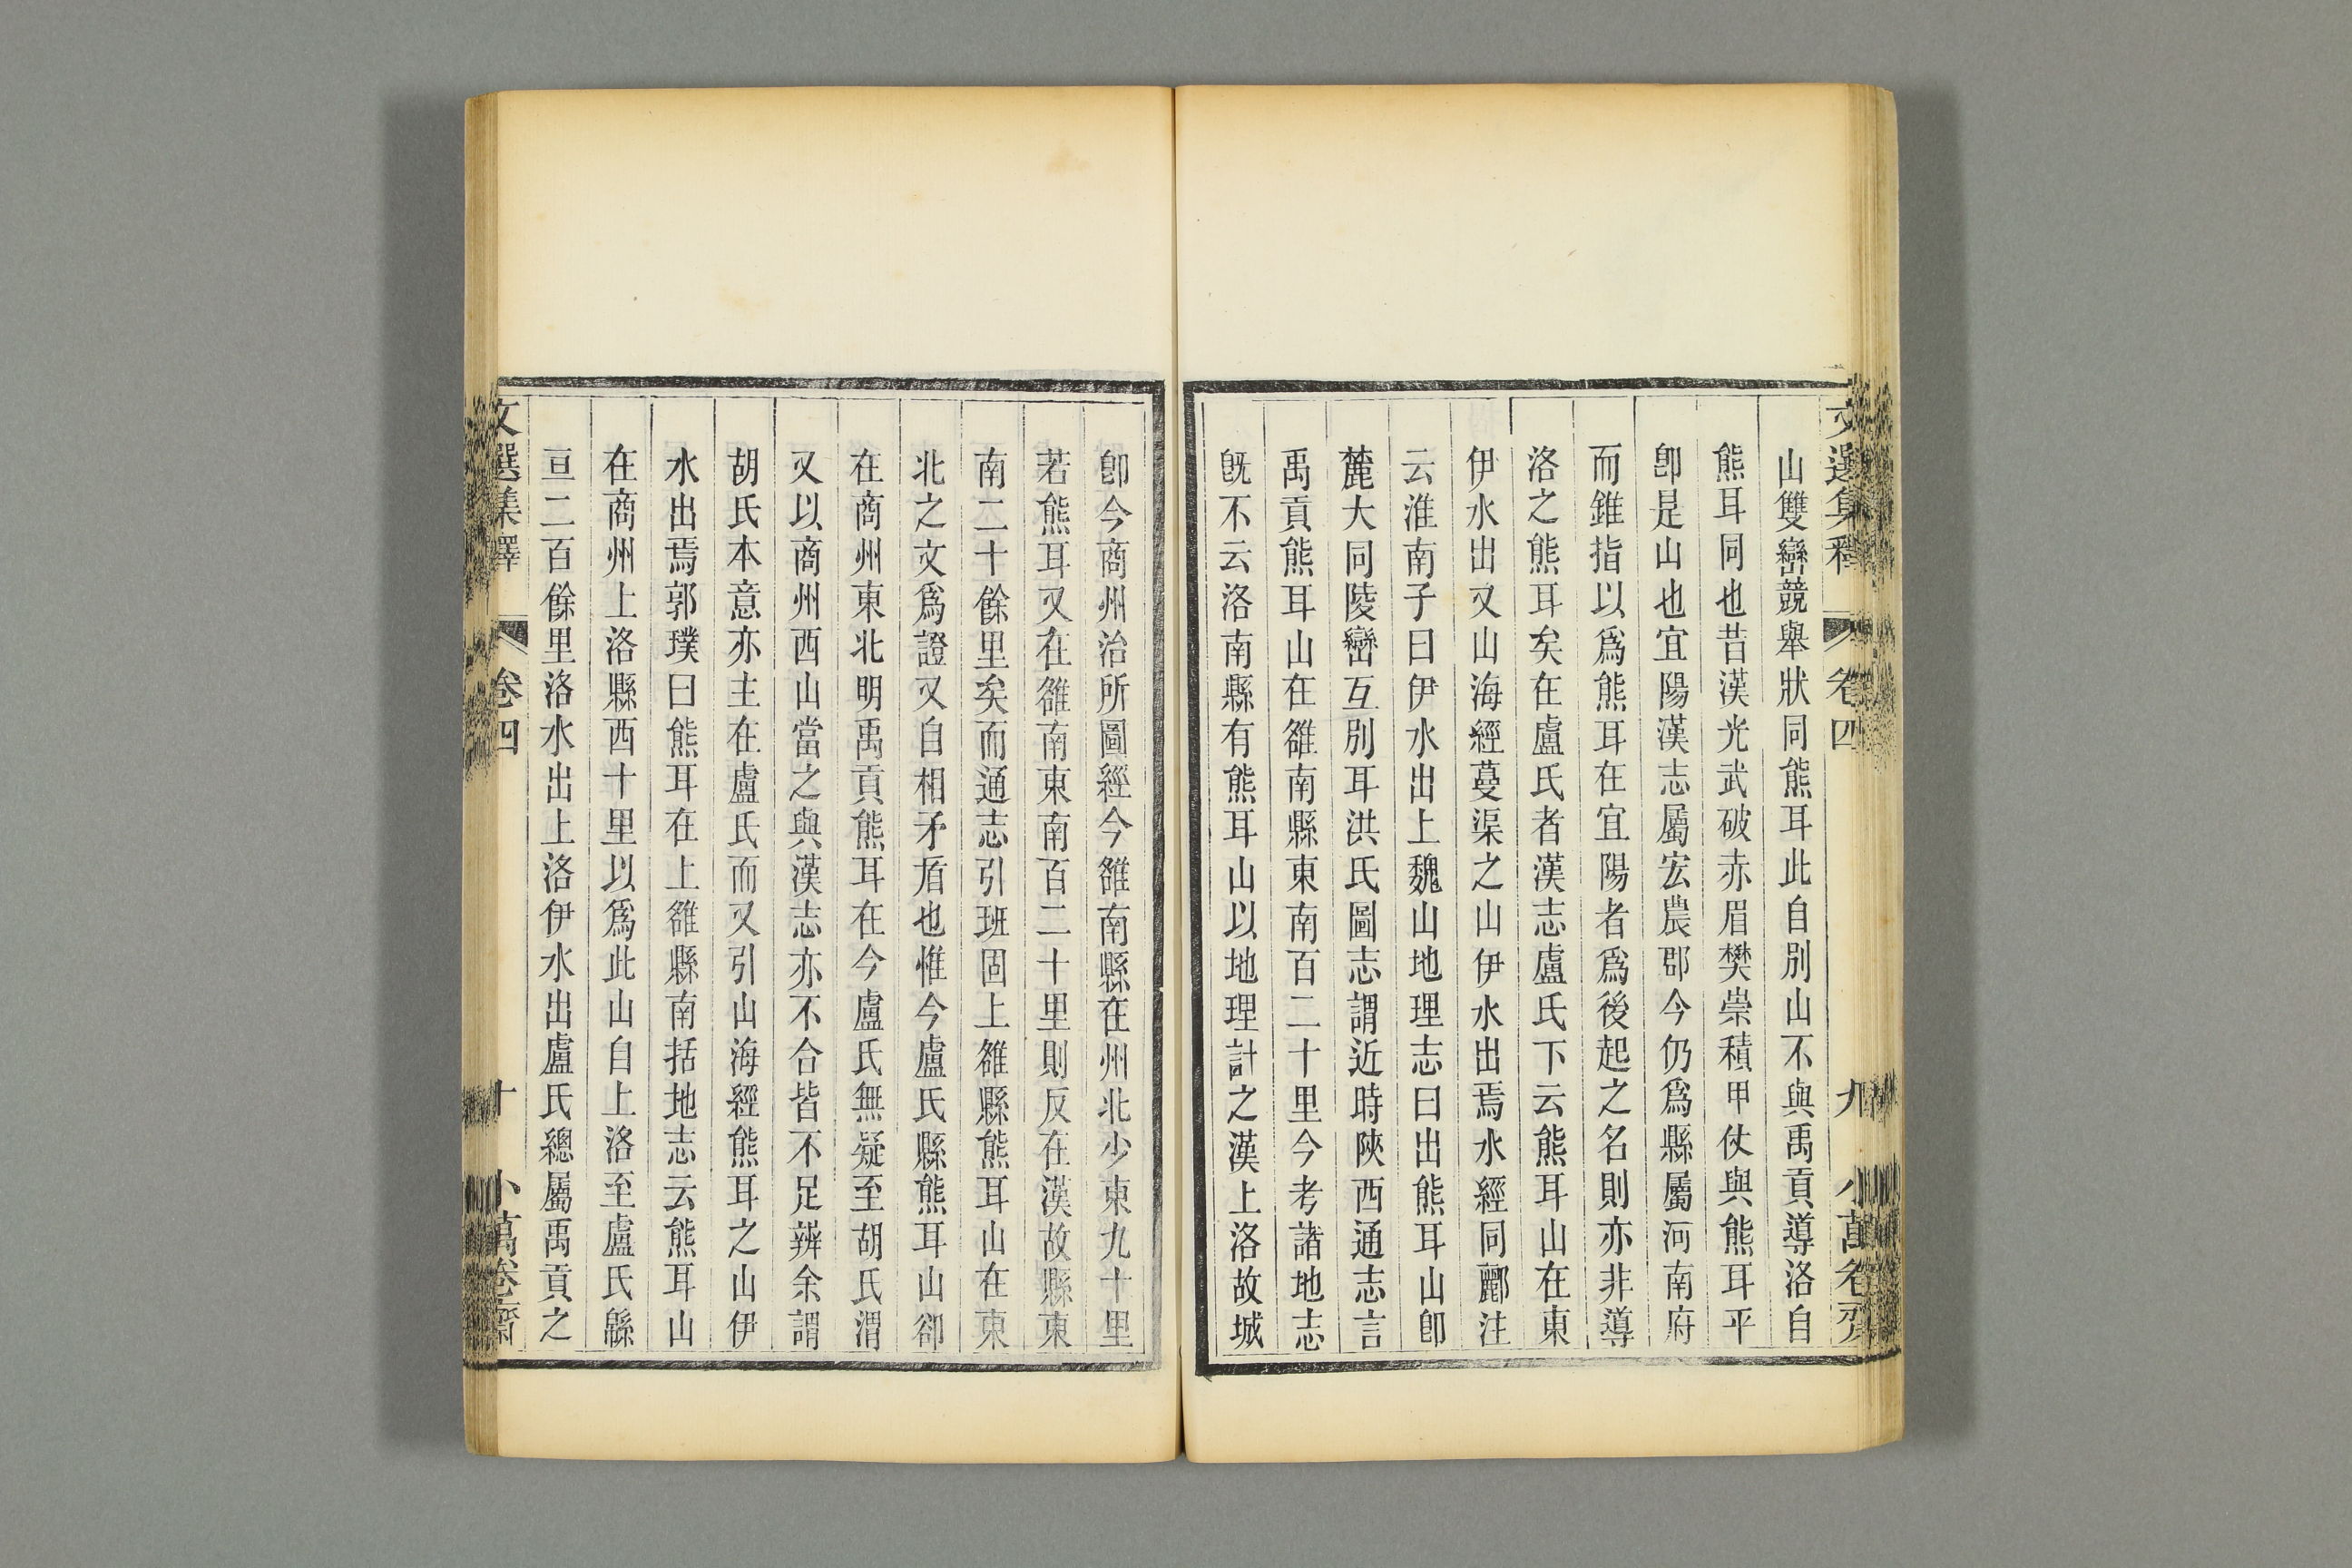 文選集釋 卷四 九 小萬卷齋
山雙巒競舉狀同熊耳此自別山不與禹貢導洛自
熊耳同也昔漢光武破赤眉樊崇積甲仗與熊耳平
卽是山也宜陽漢志屬宏農郡今仍爲縣屬河南府
而錐指以爲熊耳在宜陽者爲後起之名則亦非導
洛之熊耳矣在盧氏者漢志盧氏下云熊耳山在東
伊水出又山海經蔓渠之山伊水出焉水經同酈注
云淮南子曰伊水出上魏山地理志曰出熊耳山卽
麓大同陵巒互別耳洪氏圖志謂近時陝西通志言
禹貢熊耳山在雒南縣東南百二十里今考諸地志
旣不云洛南縣有熊耳山以地理計之漢上洛故城
卽今商州治所圖經今雒南縣在州北少東九十里
若熊耳又在雒南東南百二十里則反在漢故縣東
南二十餘里矣而通志引班固上雒縣熊耳山在東
北之文爲證又自相矛盾也惟今盧氏縣熊耳山卻
在商州東北明禹貢熊耳在今盧氏無疑至胡氏渭
又以商州西山當之與漢志亦不合皆不足辨余謂
胡氏本意亦主在盧氏而又引山海經熊耳之山伊
水出焉郭璞曰熊耳在上雒縣南括地志云熊耳山
在商州上洛縣西十里以爲此山自上洛至盧氏緜
亘二百餘里洛水出上洛伊水出盧氏總屬禹貢之
文選集釋 卷四 十 小萬卷齋